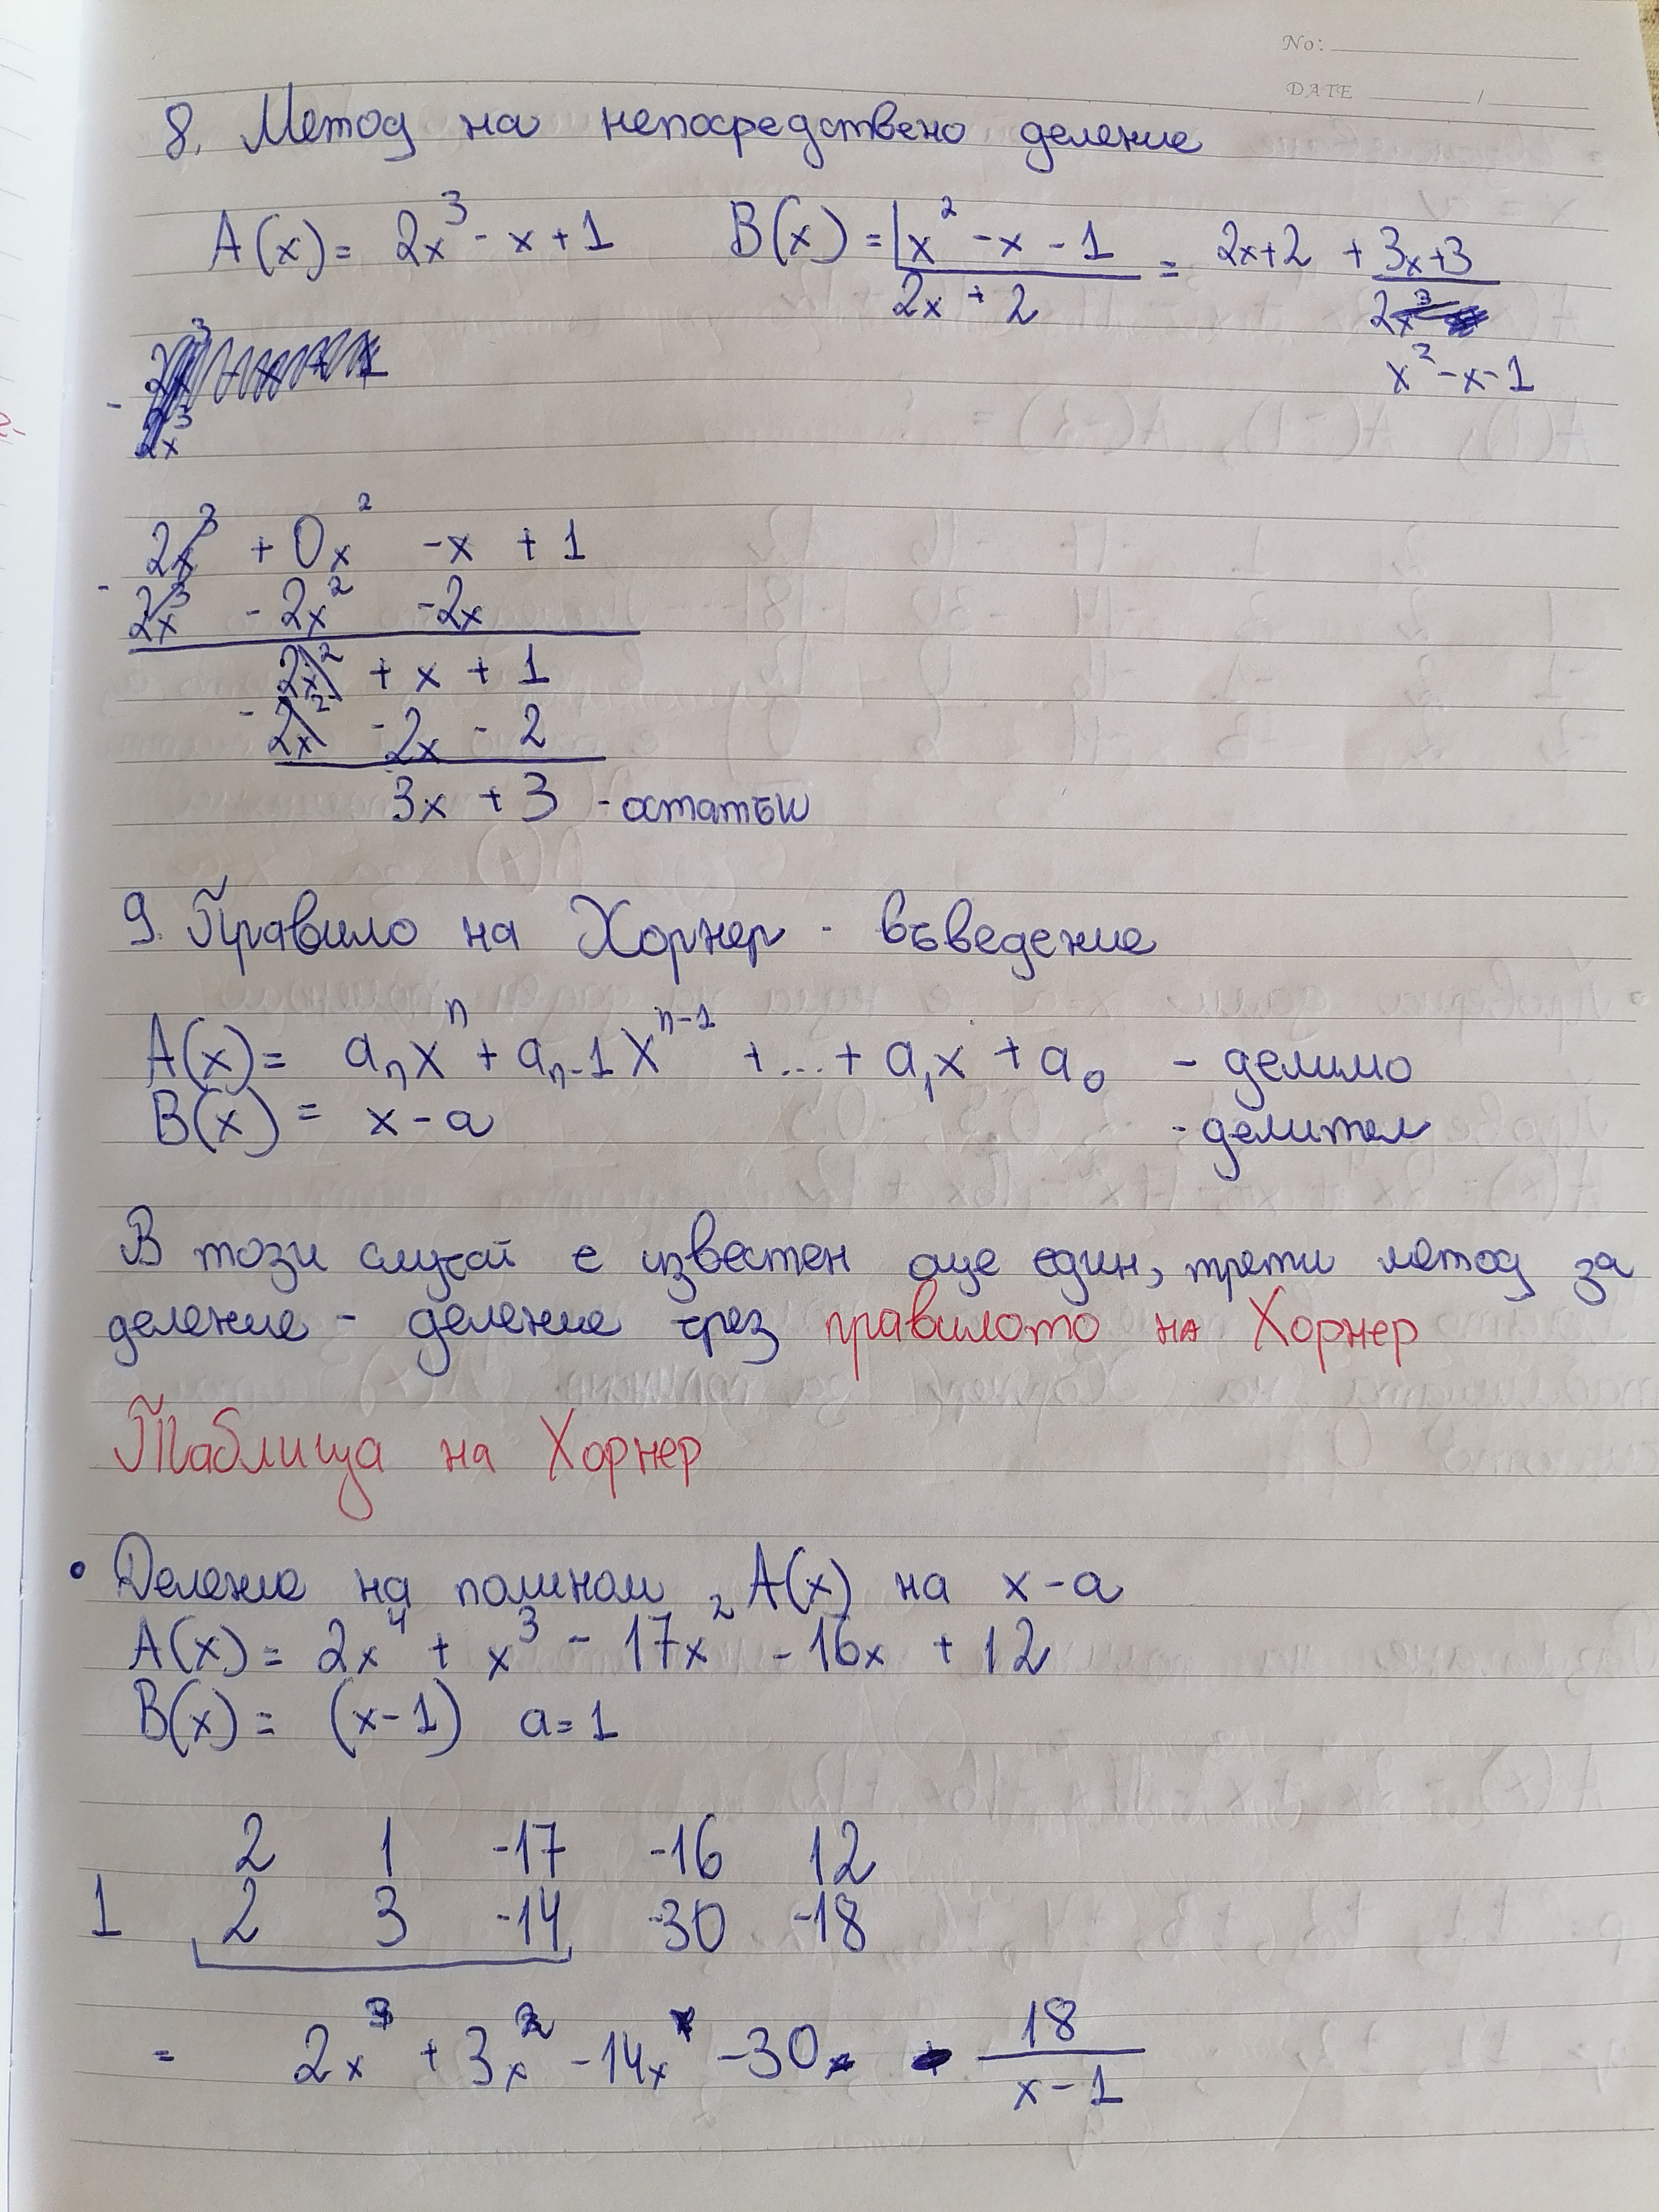 No:
DATE /
8. Метод на непосредствено деление
A(x) = 2x³ - x + 1 B(x) = x² - x - 1 = 2x+2 + 3x+3
2x + 2
x² - x - 1
2x³
2x³ + 0x² - x + 1
- 2x³ - 2x² - 2x
2x² + x + 1
- 2x² - 2x - 2
3x + 3 - остатък
9. Правило на Хорнер - въведение
A(x) = aₙxⁿ + aₙ₋₁xⁿ⁻¹ + ... + a₁x + a₀ - делимо
B(x) = x - a - делител
В този случай е известен още един, трети метод за
деление - деление чрез правилото на Хорнер
Таблица на Хорнер
• Деление на полином A(x) на x-a
A(x) = 2x⁴ + x³ - 17x² - 16x + 12
B(x) = (x-1) a=1
2 1 -17 -16 12
1 2 3 -14 -30 -18
= 2x³ + 3x² - 14x - 30 - 18
x - 1